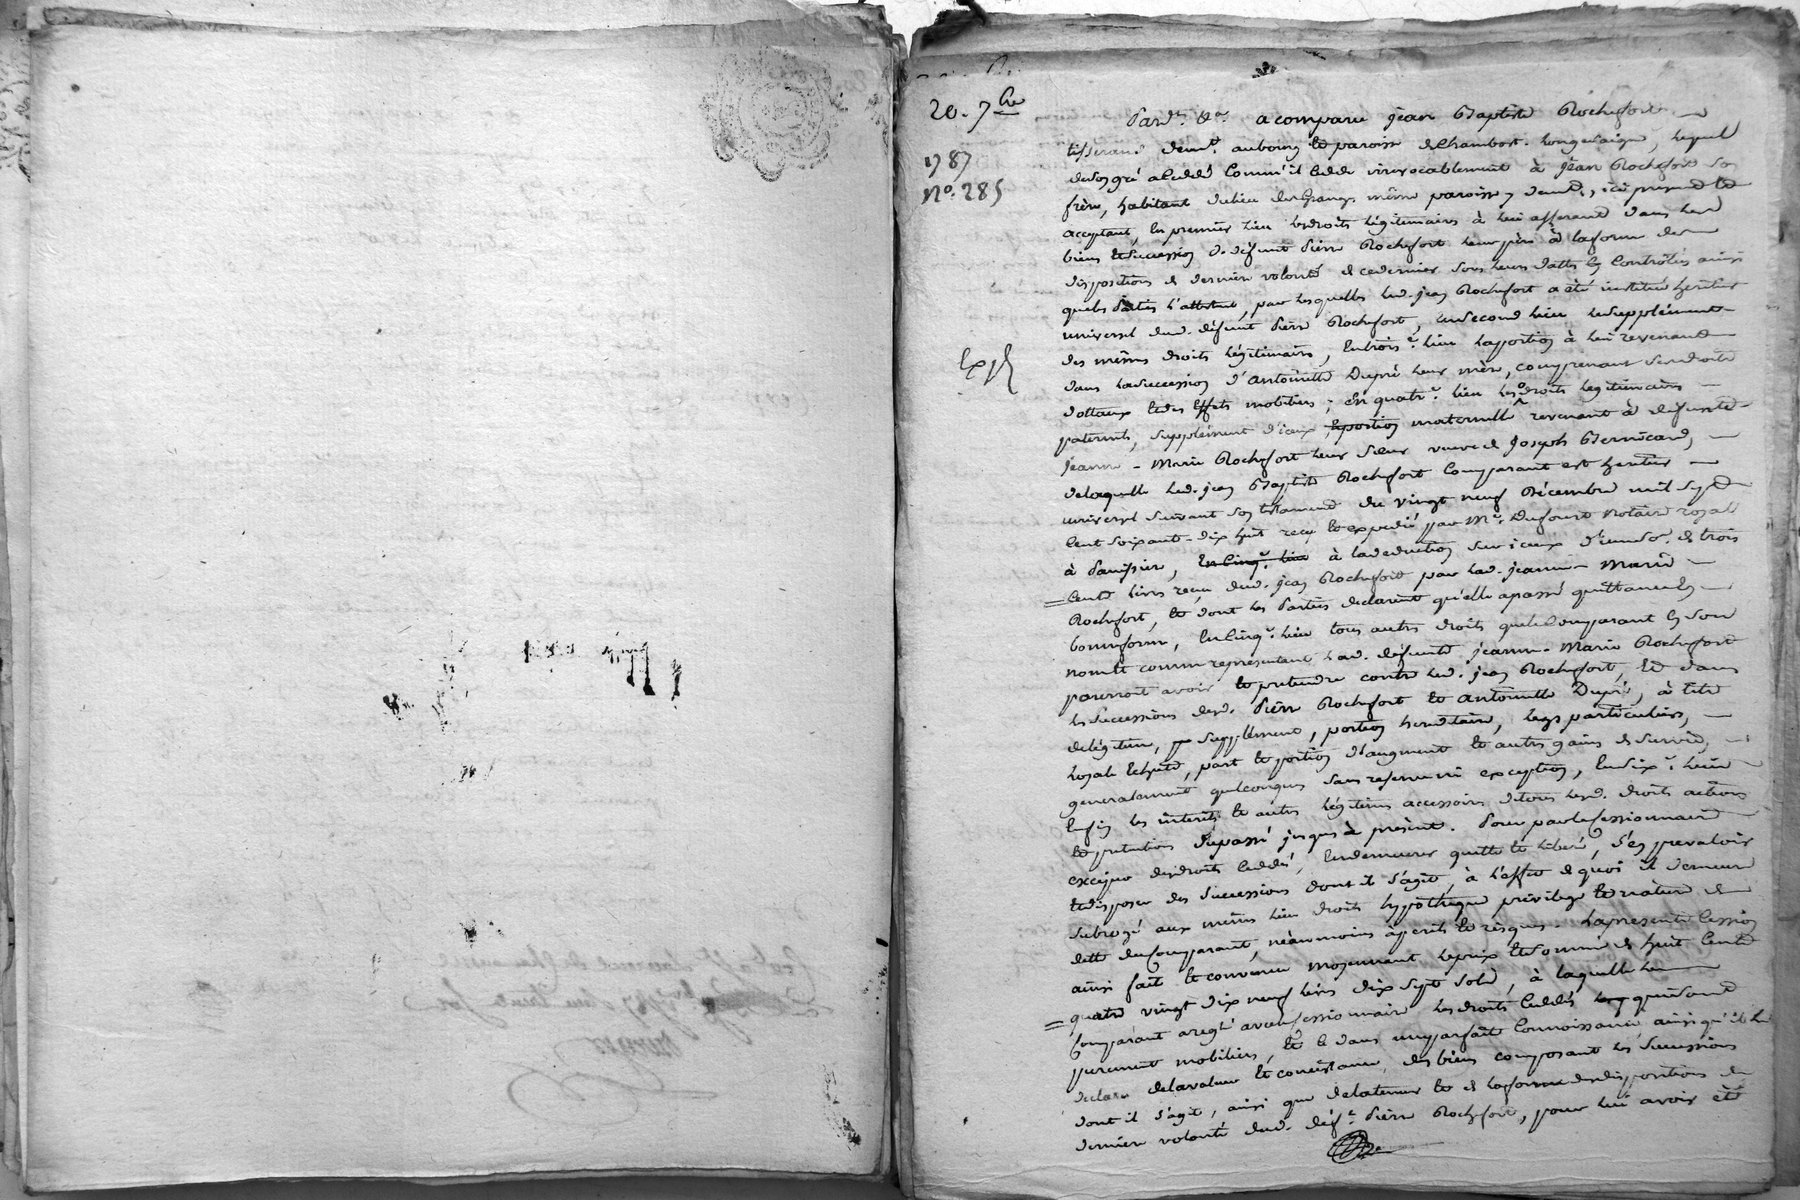 20. 7bre
1787
No. 285
Exp.
Pardt. &a. a comparu jean Baptiste Rochefort
tisserand demt. au bourg et paroisse de Chambost-Longessaigne, lequel
de son gré a Cedé Comm'il Cede irrevocablement à jean Rochefort son
frère, habitant du lieu des Granges même paroisse y demt., ici present et
acceptant, en premier lieu les droits légitimaires à lui afferant dans les
biens et succession de défunt Pierre Rochefort leur père à la forme des
dispositions de derniere volonté de ce dernier sous leurs dattes en Contrôlés ainsi
que les Parties l'attestent, par lesquelles led. jean Rochefort a été institué heritier
universel dud. défunt Pierre Rochefort, en second lieu le supplément
des mêmes droits légitimaires, en trois.e lieu la portion à lui revenant
dans la succession d'antoinette Dupré leur mère, comprenant ses droits
dottaux et des effets mobiliers; en quatr.e lieu les droits legitimaires
paternels, supplément d'iceux, et portion maternelle revenant à défunte
jeanne-Marie Rochefort leur sœur veuve de Joseph Bernicard,
de laquelle led. jean Baptiste Rochefort Comparant est heritier
universel suivant son testament du vingt neuf Décembre mil sept
Cent soixante-dix huit reçu et expedié par Me. Dufourt Notaire royal
à Panissiere, en Cinq.e lieu à la deduction sur iceux d'une so. de trois
Cents livres reçue dud. jean Rochefort par lad. jeanne Marie
Rochefort, et dont les Parties declarent qu'elle a passé quittance en
bonne forme, en Cinq.e lieu tous autres droits que le Comparant en son
nom et comme representant lad. défunte jeanne-Marie Rochefort
pourroit avoir et pretendre contre led. jean Rochefort, et dans
les successions desd. Pierre Rochefort et antoinette Dupré, à titre
de légitime, supplément, portion hereditaire, legs particuliers,
loyale échute, part et portion d'augment et autres gains de survie,
generalement quelconques sans reserve ni exception, en six.e lieu
Enfin les interêts et autres légitimes accessoires de tous lesd. droits actions
et pretentions du passé jusques à present. Pour par le Cessionnaire
exciper desdroits Cedés, en demeurer quitte et liberé, s'en prevaloir
et disposer des successions dont il s'agit, à l'effet de quoi il demeure
subrogé aux mêmes lieu droits hypothèque privilege et nature de
dette du Comparant, néanmoins à perils et risques. La presente Cession
ainsi fait et convenu moyennant le prix et somme de huit Cents
quatre vingt dix neuf livres dix sept sols, à laquelle le
Comparant a reglé avec le Cessionnaire les droits Cedés qui sont
purement mobiliers, et ce dans une parfaite Connoissance ainsi qu'il le
declare de la valeur et consistance des biens composant les successions
dont il s'agit, ainsi que de la teneur et de la forme des dispositions de
derniere volonté dud. déft. Pierre Rochefort, pour lui avoir été